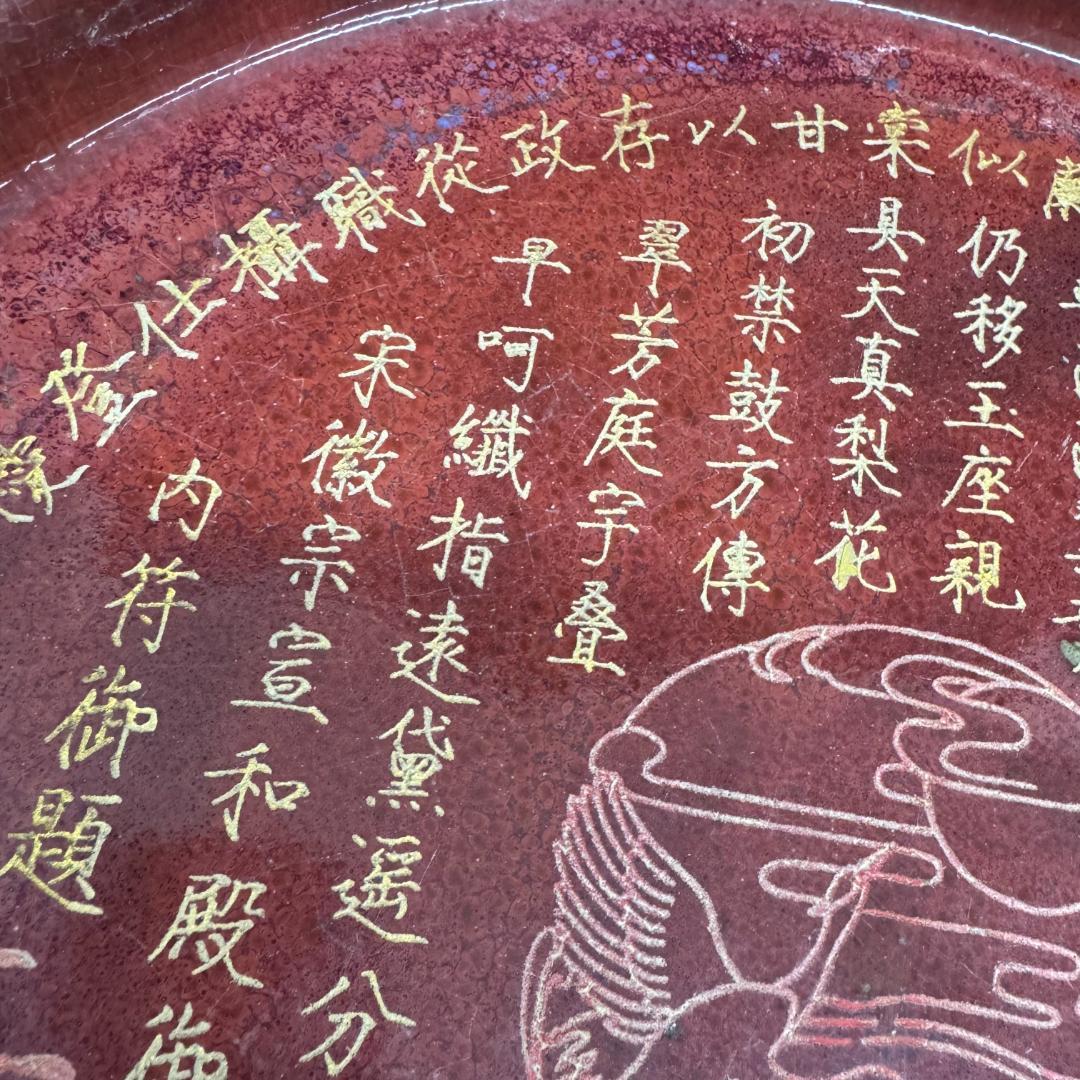 優登仕攝職從政存以甘棠似蘭
仍移玉座親
具天真梨花
初禁鼓方傳
翠芳庭宇疊
早呵纖指遠黛遥分
宋徽宗宣和殿御
内符御題